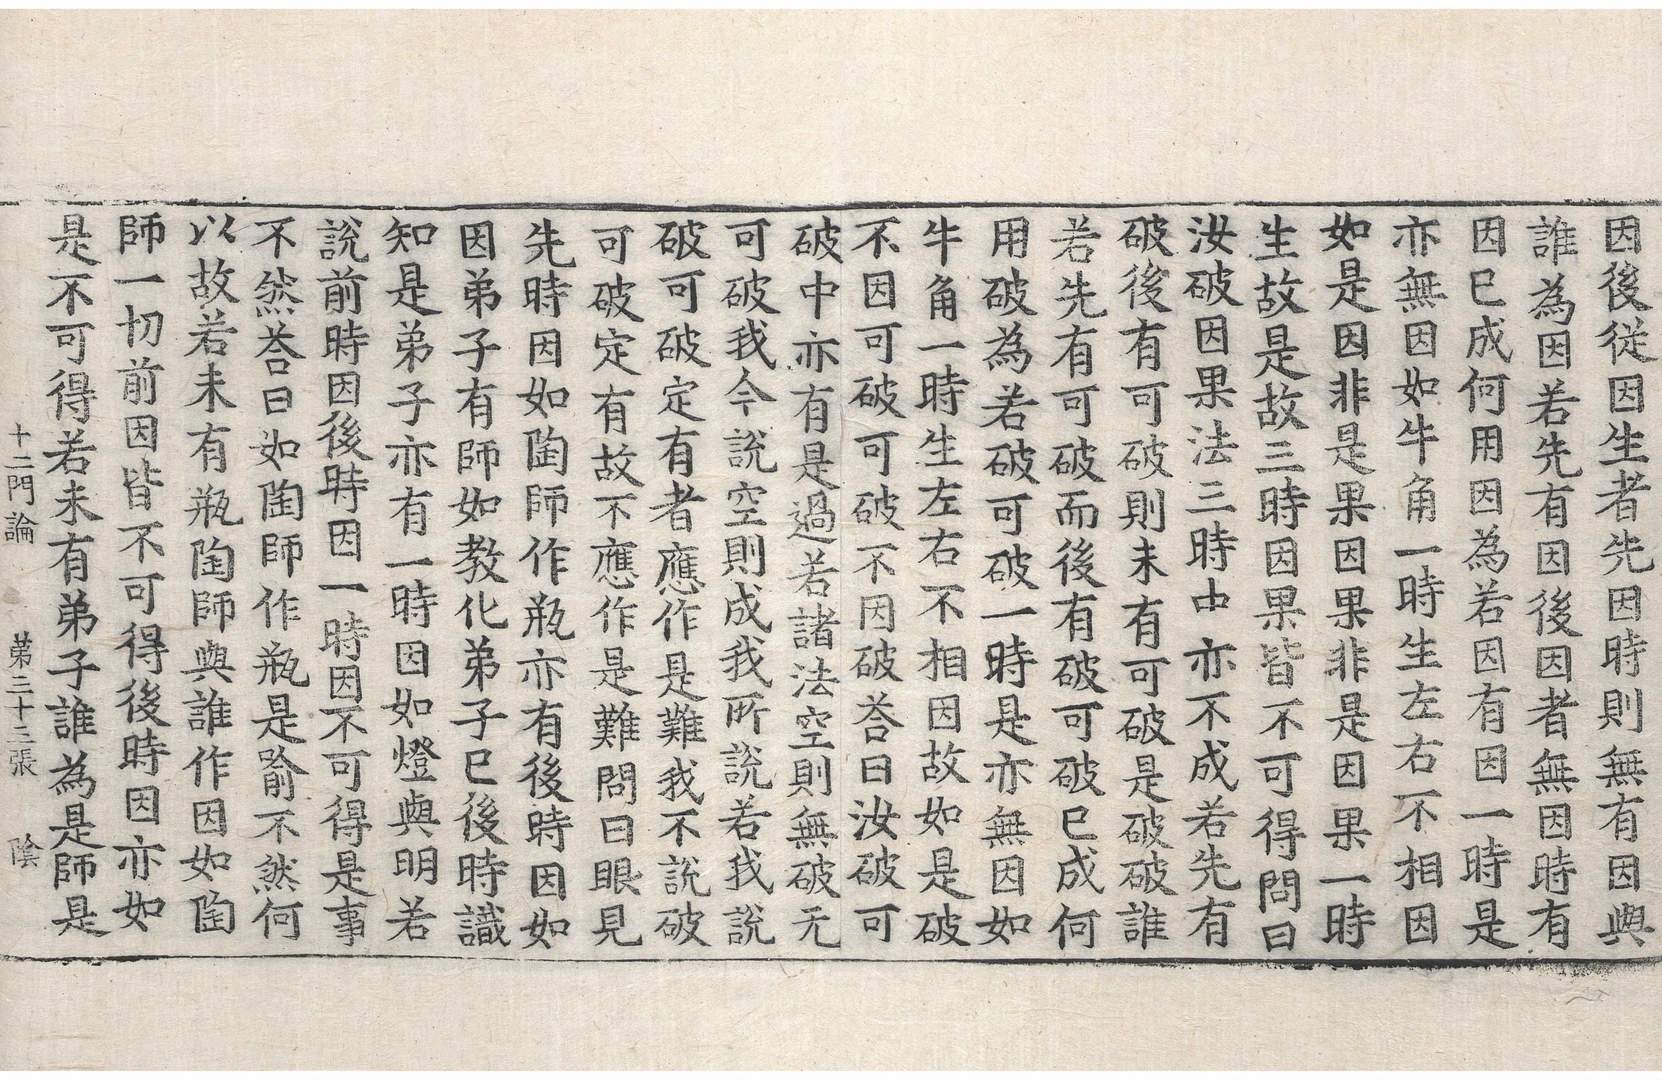 因後從因生者先因時則無有因與
誰為因若先有因後因者無因時有
因已成何用因為若因有因一時是
亦無因如牛角一時生左右不相因
如是因非是果因果非是因果一時
生故是故三時因果皆不可得問曰
汝破因果法三時中亦不成若先有
破後有可破則未有可破是破破誰
若先有可破而後有破可破已成何
用破為若破可破一時是亦無因如
牛角一時生左右不相因故如是破
不因可破可破不因破荅曰汝破可
破中亦有是過若諸法空則無破无
可破我今說空則成我所說若我說
破可破定有者應作是難我不說破
可破定有故不應作是難問曰眼見
先時因如陶師作瓶亦有後時因如
因弟子有師如教化弟子已後時識
知是弟子亦有一時因如燈與明若
說前時因後時因一時因不可得是事
不然荅曰如陶師作瓶是喻不然何
以故若未有瓶陶師與誰作因如陶
師一切前因皆不可得後時因亦如
是不可得若未有弟子誰為是師是
十二門論 苐三十三張 陰